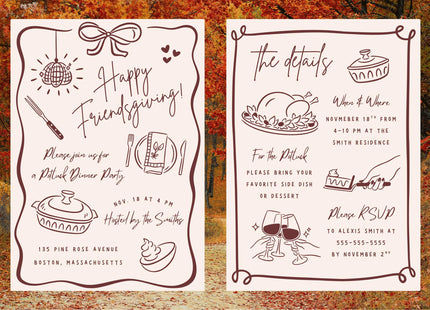 Happy
Friendsgiving!
Please join us for
a Potluck Dinner Party
NOV. 18 AT 4 PM
Hosted by the Smiths
135 PINE ROSE AVENUE
BOSTON, MASSACHUSETTS
the details
When & Where
NOVEMBER 18TH FROM
4-10 PM AT THE
SMITH RESIDENCE
For the Potluck
PLEASE BRING YOUR
FAVORITE SIDE DISH
OR DESSERT
Please RSVP
TO ALEXIS SMITH AT
555-555-5555
BY NOVEMBER 2ND